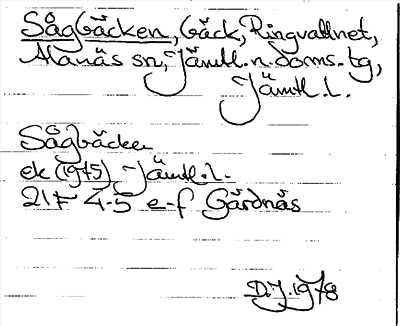 Sågbäcken, bäck, Ringvattnet,
Alanäs sn, Jämtl. n. doms. tg,
Jämtl. l.
Sågbäcken
ek (1975) Jämtl. l.
21F 4-5 e-f Gärdnäs
D.J. 1978